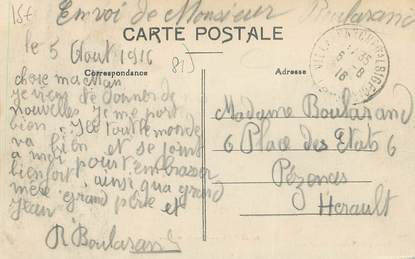 15€
Envoi de Monsieur Boularand
CARTE POSTALE
le 5 Aout 1916
81)
Correspondance
Adresse
chere maman
je viens de donner de
nouvelles je me port
bien. tout le monde
va bien et se joint
a moi pour t'embrasser
bien fort ainsi qua grand
mere grand pere et
Jean
R Boularand
Madame Boularand
6 Place des Etats 6
Pézenas
Herault